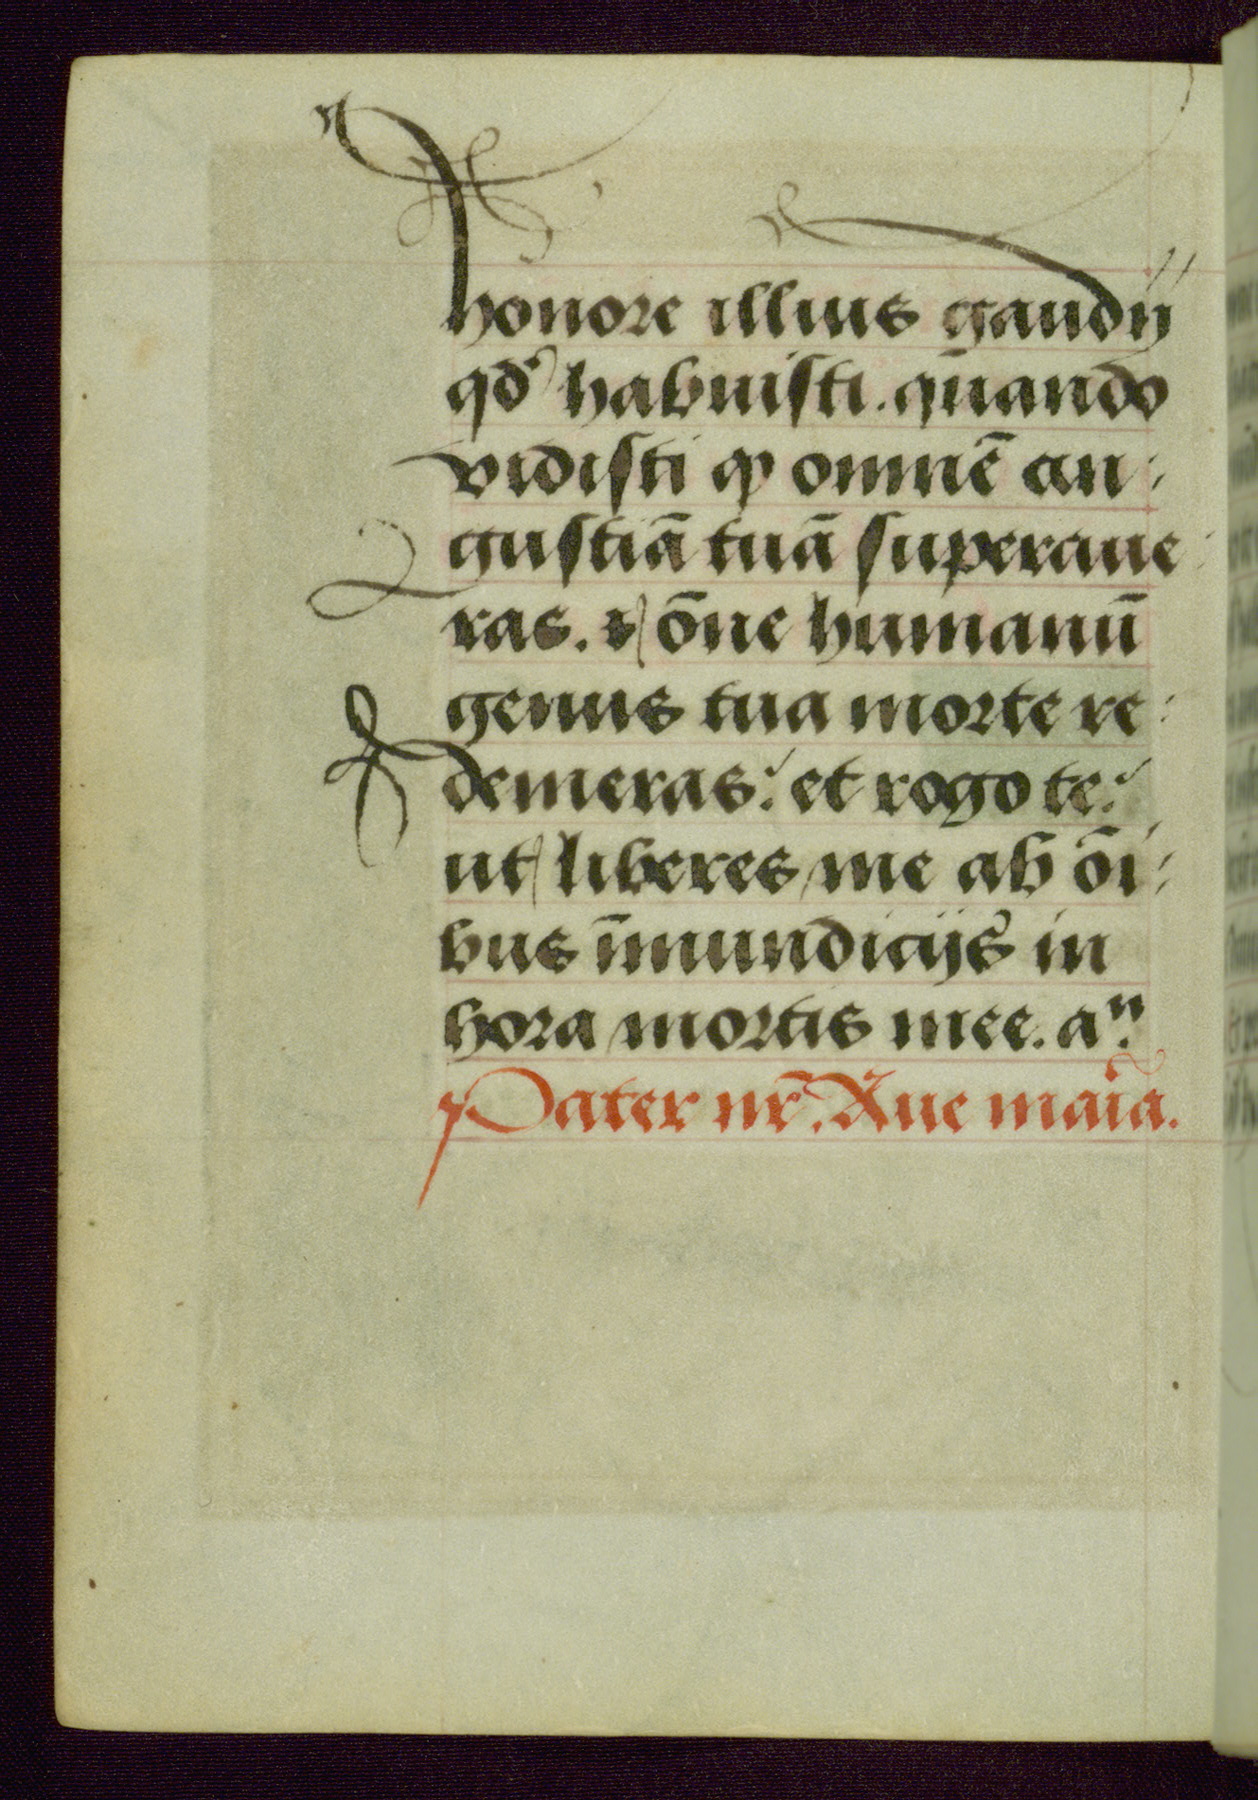 honore illius gaudij
qd' habuisti. quando
vidisti ꝙ omnē an⸗
gustiā tuā superaue⸗
ras. ⁊ ōne humanū
genus tua morte re⸗
demeras: et rogo te:
ut liberes me ab ōi⸗
bus īmundicijs in
hora mortis mee. aⁿ.
Pater nr̄. Aue maīa.